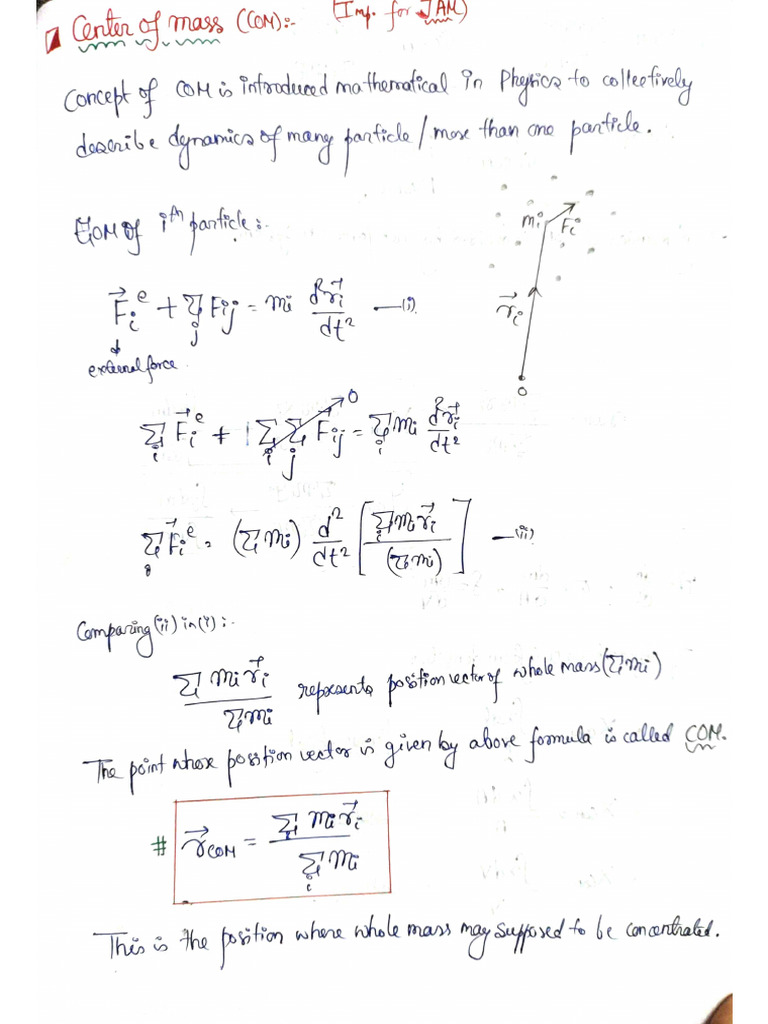 Center of mass (COM):- (Imp. for JAM)
Concept of COM is introduced mathematical in Physics to collectively
describe dynamics of many particle / more than one particle.
EOM of iᵗʰ particle:-
mᵢ F⃗ᵢ
r⃗ᵢ
O
F⃗ᵢᵉ + Σⱼ Fᵢⱼ = mᵢ d²r⃗ᵢ/dt² —(i)
external force
Σᵢ F⃗ᵢᵉ + Σᵢ Σⱼ F⃗ᵢⱼ = Σᵢ mᵢ d²r⃗ᵢ/dt²
0
Σᵢ F⃗ᵢᵉ = (Σmᵢ) d²/dt² [Σᵢ mᵢr⃗ᵢ/(Σmᵢ)] —(ii)
Comparing (ii) in (i):-
Σ mᵢr⃗ᵢ/Σmᵢ represents position vector of whole mass (Σmᵢ)
The point whose position vector is given by above formula is called COM.
# r⃗COM = Σᵢ mᵢr⃗ᵢ/Σᵢ mᵢ
This is the position where whole mass may supposed to be concentrated.